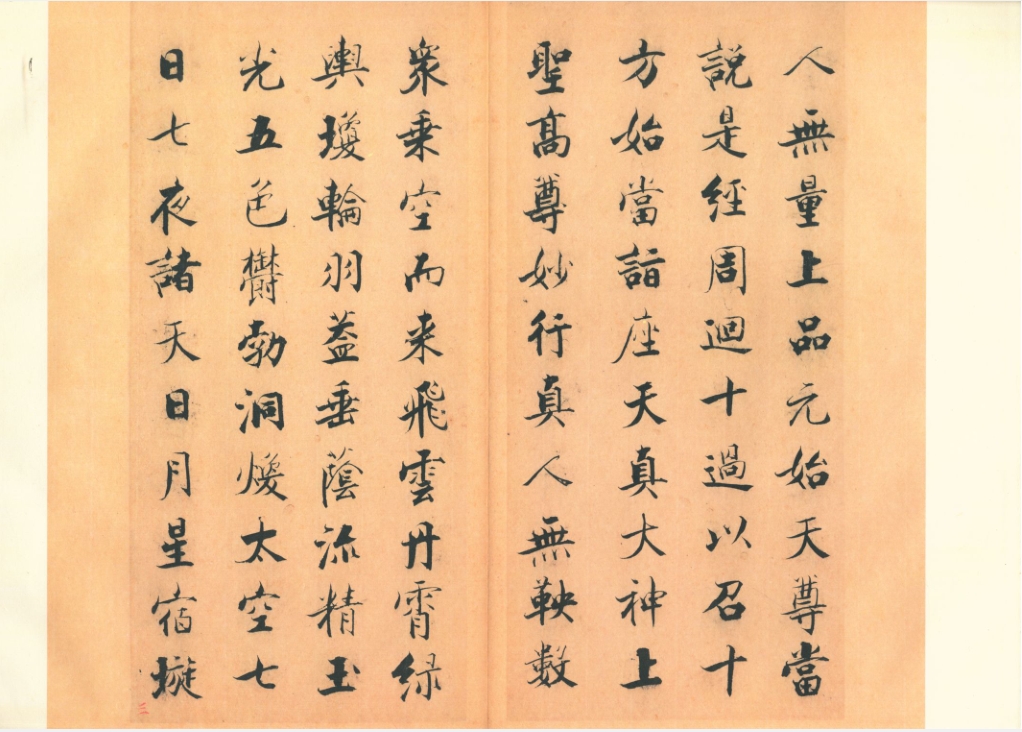 人無量上品元始天尊當
說是經周迴十過以召十
方始當詣座天真大神上
聖高尊妙行真人無鞅數
衆乗空而来飛雲丹霄緑
輿瓊輪羽蓋垂蔭流精玉
光五色欝勃洞煥太空七
日七夜諸天日月星宿璇
三